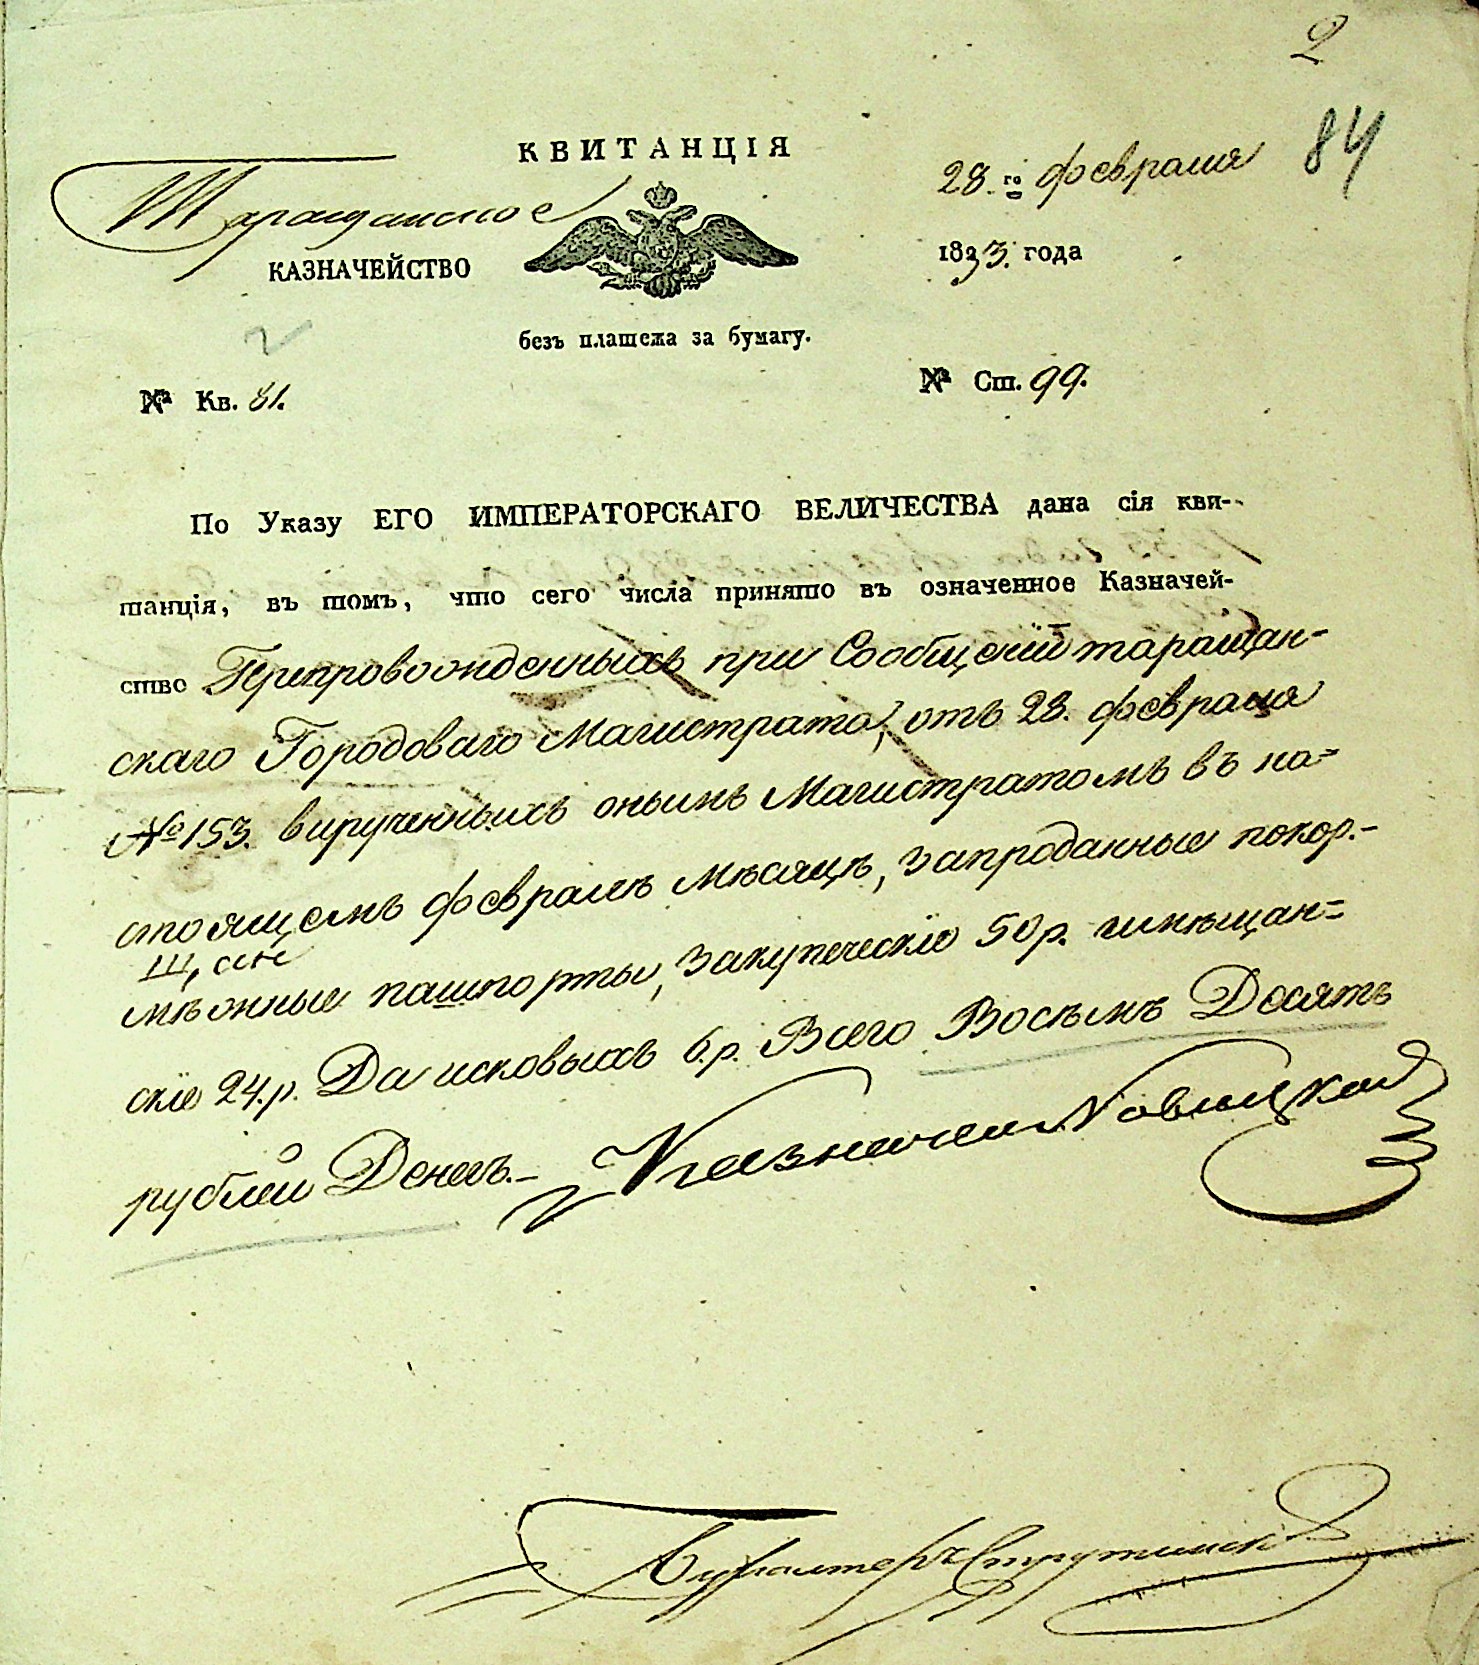 2
84
КВИТАНЦІЯ
Таращанское
28.го февраля
КАЗНАЧЕЙСТВО
1833. года
безъ платежа за бумагу.
№ Кв. 81.
№ Ст. 99.
По Указу ЕГО ИМПЕРАТОРСКАГО ВЕЛИЧЕСТВА дана сія кви-
танція, въ томъ, что сего числа принято въ означенное Казначей-
ство Препровожденныхъ при Сообщеніи таращан-
скаго Городоваго Магистрата, отъ 28. февраля
№ 153. вирученныхъ онымъ Магистратомъ въ на=
стоящемъ февралѣ мѣсяцѣ, запроданные покор.-
меженные пашпорты, Закупеческіе 50 р. имѣщан=
скіе 24. р. Да исковыхъ 6. р. Всего Восѣмъ Десятъ
рублей Денегъ.-
Казначей Новицкій
Бухгалтеръ Струтинскій